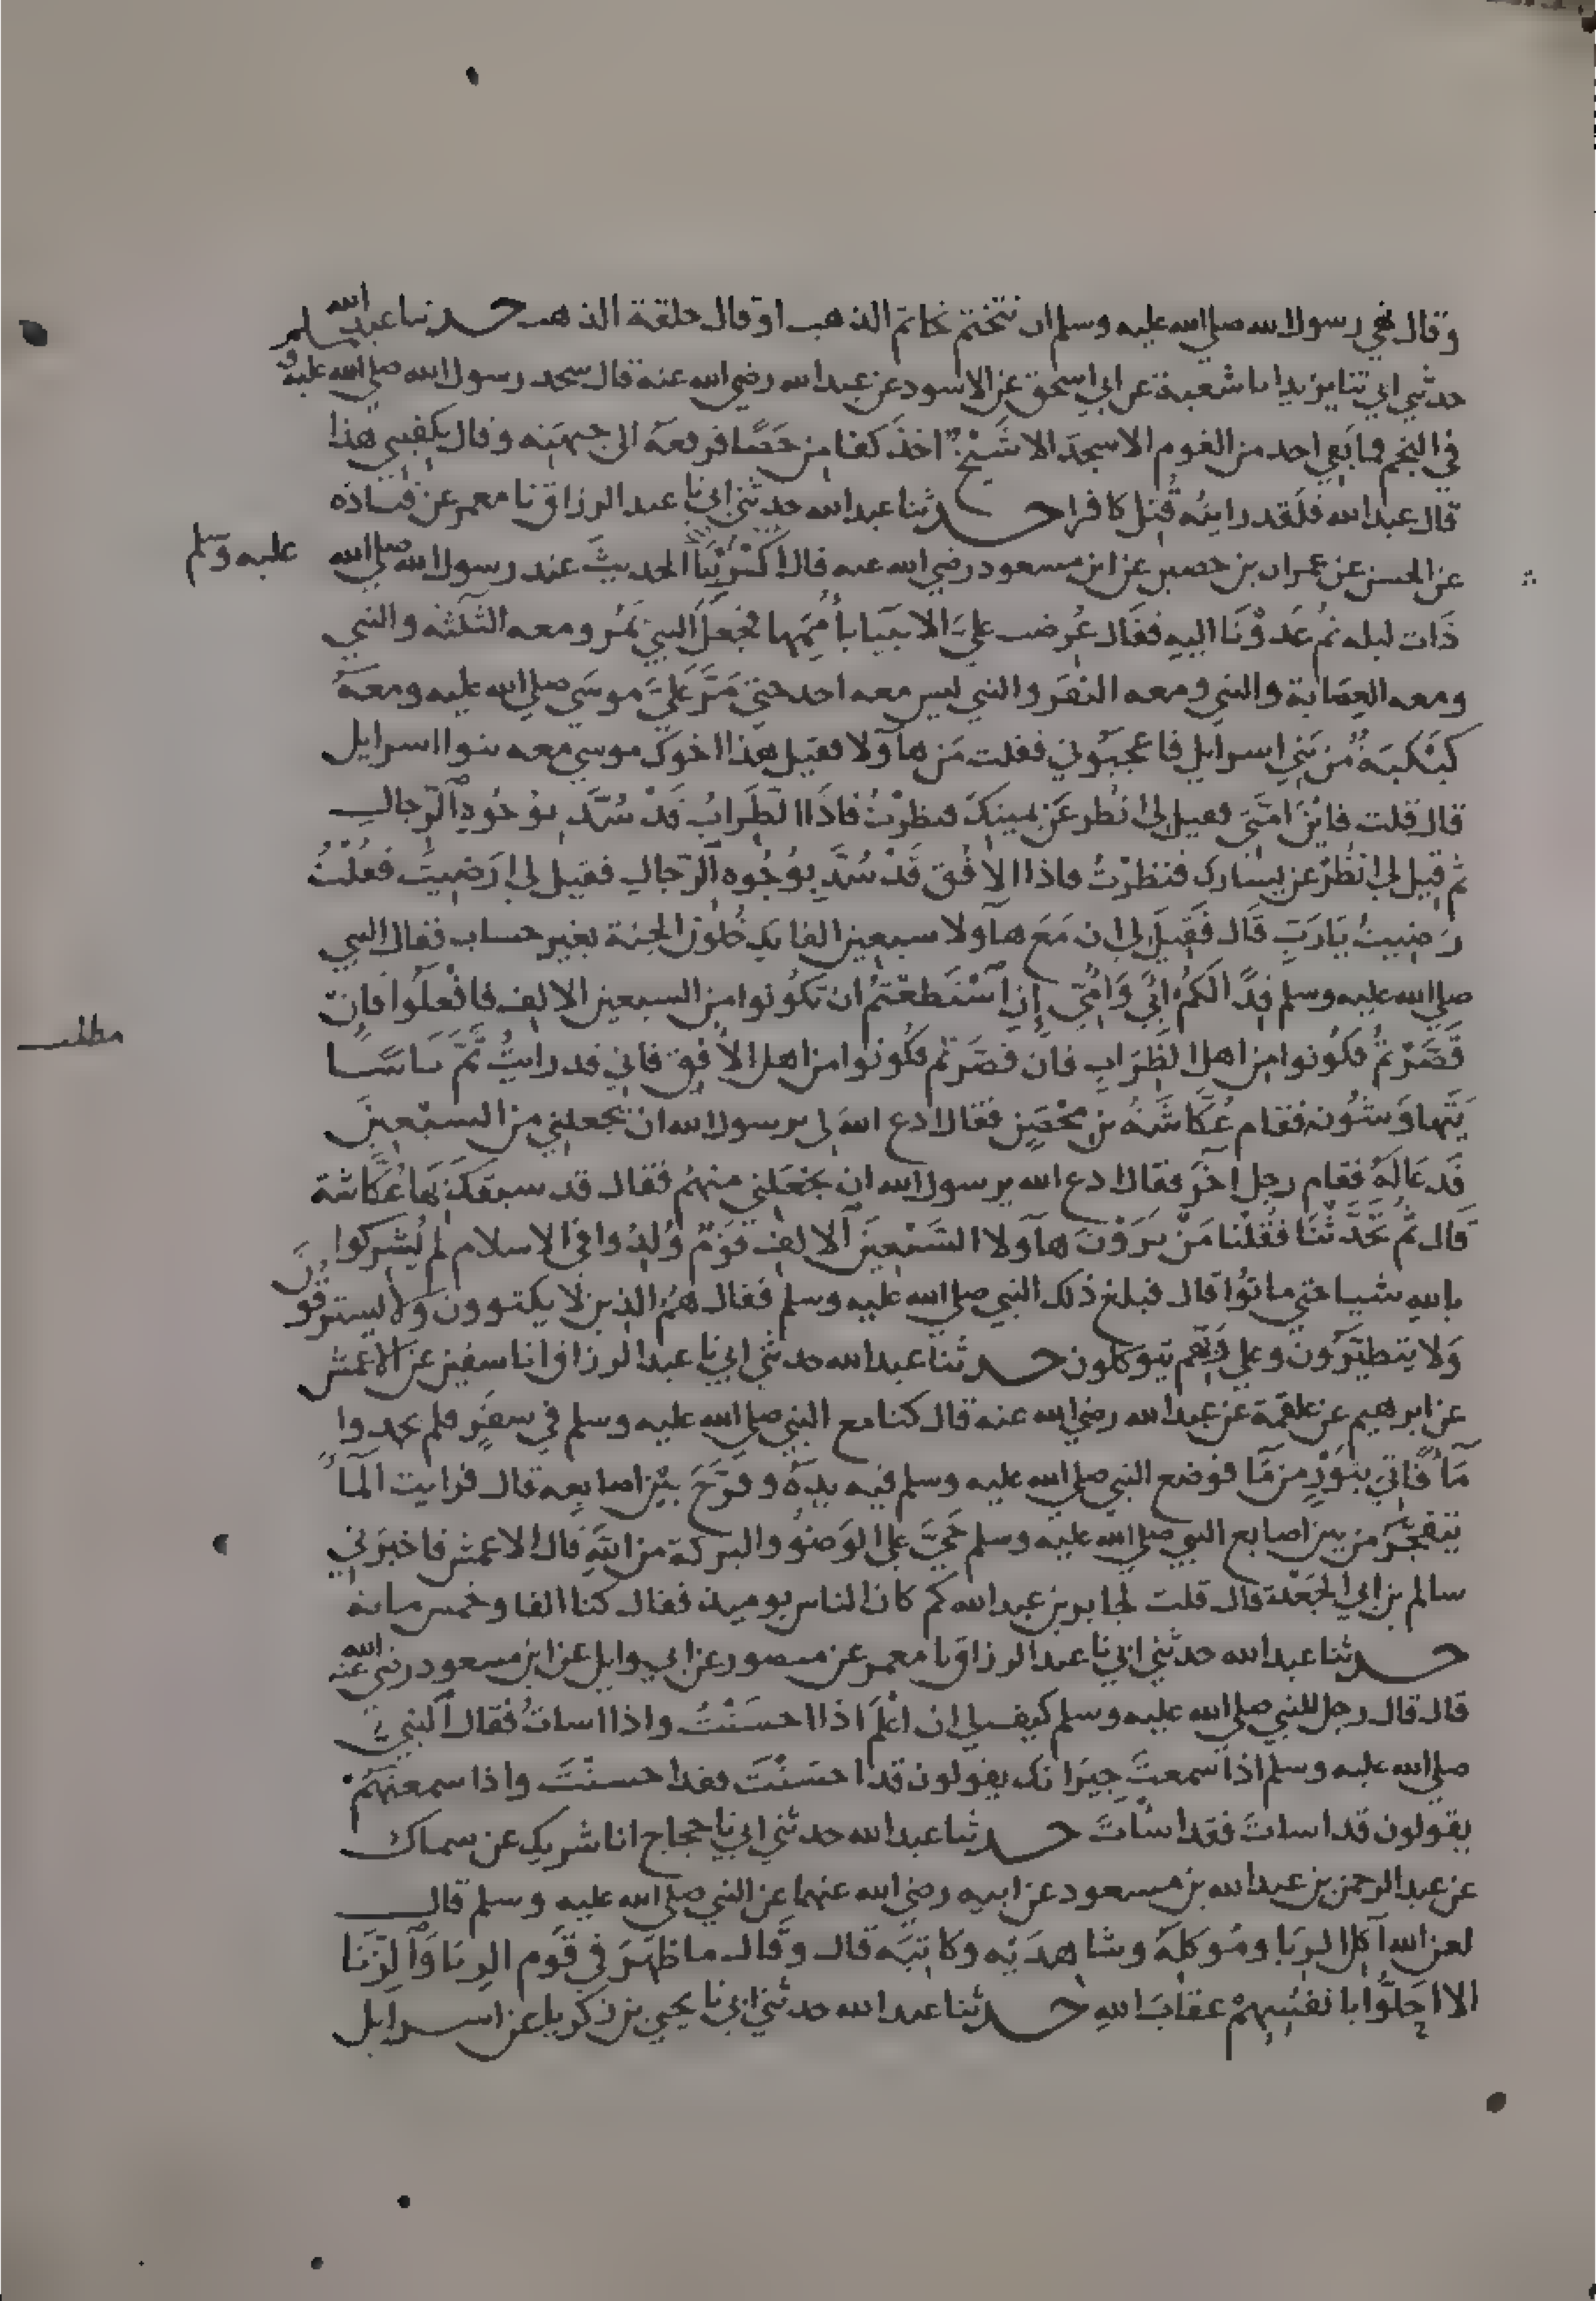 وقال نهي رسول الله صلى الله عليه وسلم ان نتختم بخاتم الذهب او قال حلقة الذهب حدثنا عبد الله
حدثني ابي ثنا يزيد انا شعبة عن ابي اسحق عن الاسود عن عبد الله رضي الله عنه قال سجد رسول الله صلى الله عليه وسلم
في النجم فما بقي احد من القوم الا سجد الا شيخ اخذ كفا من حصا فرفعه الى جبهته وقال يكفيني هذا
قال عبد الله فلقد رايته قتل كافرا حدثنا عبد الله حدثني ابي نا عبد الرزاق نا معمر عن قتاده
عن الحسن عن عمران بن حصين عن ابن مسعود رضي الله عنه قال اكثرنا الحديث عند رسول الله صلى الله عليه وسلم
ذات ليله ثم غدونا اليه فقال عرضت علي الانبيا بأممها فجعل النبي يمر ومعه الثلثه والنبي
ومعه العصابة والنبي ومعه النفر والنبي ليس معه احد حتى مر علي موسى صلى الله عليه ومعه
كبكبة من بني اسرايل فاعجبوني فقلت من هاولا فقيل هذا اخوك موسى معه بنوا اسرايل
قال قلت فاين امتي فقيل لي انظر عن يمينك فنظرت فاذا الظراب قد سد بوجوه الرجال
ثم قيل لي انظر عن يسارك فنظرت فاذا الافق قد سد بوجوه الرجال فقيل لي ارضيت فقلت
رضيت يا رب قال فقيل لي ان مع هاولا سبعين الفا يدخلون الجنة بغير حساب فقال النبي
صلى الله عليه وسلم فدا لكم ابي وامي إن استطعتم ان تكونوا من السبعين الالف فافعلوا فان
قصرتم فكونوا من اهل الظراب فان قصرتم فكونوا من اهل الافق فاني قد رايت ثم ناسا
يتهاوشون فقام عكاشة بن محصن فقال ادع الله لي يرسول الله ان يجعلني من السبعين
فدعا له فقام رجل اخر فقال ادع الله يرسول الله ان يجعلني منهم فقال قد سبقك بها عكاشة
قال ثم تحدثنا فقلنا من ترون هاولا السبعين الالف قوم ولدوا في الاسلام لم يشركوا
بالله شيا حتى ماتوا قال فبلغ ذلك النبي صلى الله عليه وسلم فقال هم الذين لا يكتوون ولا يسترقون
ولا يتطيرون وعلى ربهم يتوكلون حدثنا عبد الله حدثني ابي نا عبد الرزاق انا سفين عن الاعمش
عن ابرهيم عن علقمة عن عبد الله رضي الله عنه قال كنا مع النبي صلى الله عليه وسلم في سفر فلم يجدوا
ما فاتي بتور من ما فوضع النبي صلى الله عليه وسلم فيه يده وفرج بين اصابعه قال فرايت الما
يتفجر من بين اصابع النبي صلى الله عليه وسلم حي على الوضو والبركة من الله قال الاعمش فاخبرني
سالم بن ابي الجعد قال قلت لجابر بن عبد الله كم كان الناس يوميذ فقال كنا الفا وخمس مائة
حدثنا عبد الله حدثني ابي نا عبد الرزاق نا معمر عن منصور عن ابي وايل عن ابن مسعود رضي الله عنه
قال قال رجل للنبي صلى الله عليه وسلم كيف لي ان اعلم اذا احسنت واذا اسات فقال النبي
صلى الله عليه وسلم اذا سمعت جيرانك يقولون قد احسنت فقد احسنت واذا سمعتهم
يقولون قد اسات فقد اسات حدثنا عبد الله حدثني ابي نا حجاج انا شريك عن سماك
عن عبد الرحمن بن عبد الله بن مسعود عن ابيه رضي الله عنهما عن النبي صلى الله عليه وسلم قال
لعن الله آكل الربا وموكله وشاهديه وكاتبه قال وقال ما ظهر في قوم الربا والزنا
الا احلوا بانفسهم عقاب الله حدثنا عبد الله حدثني ابي نا يحيى بن زكريا عن اسرايل
مطلب